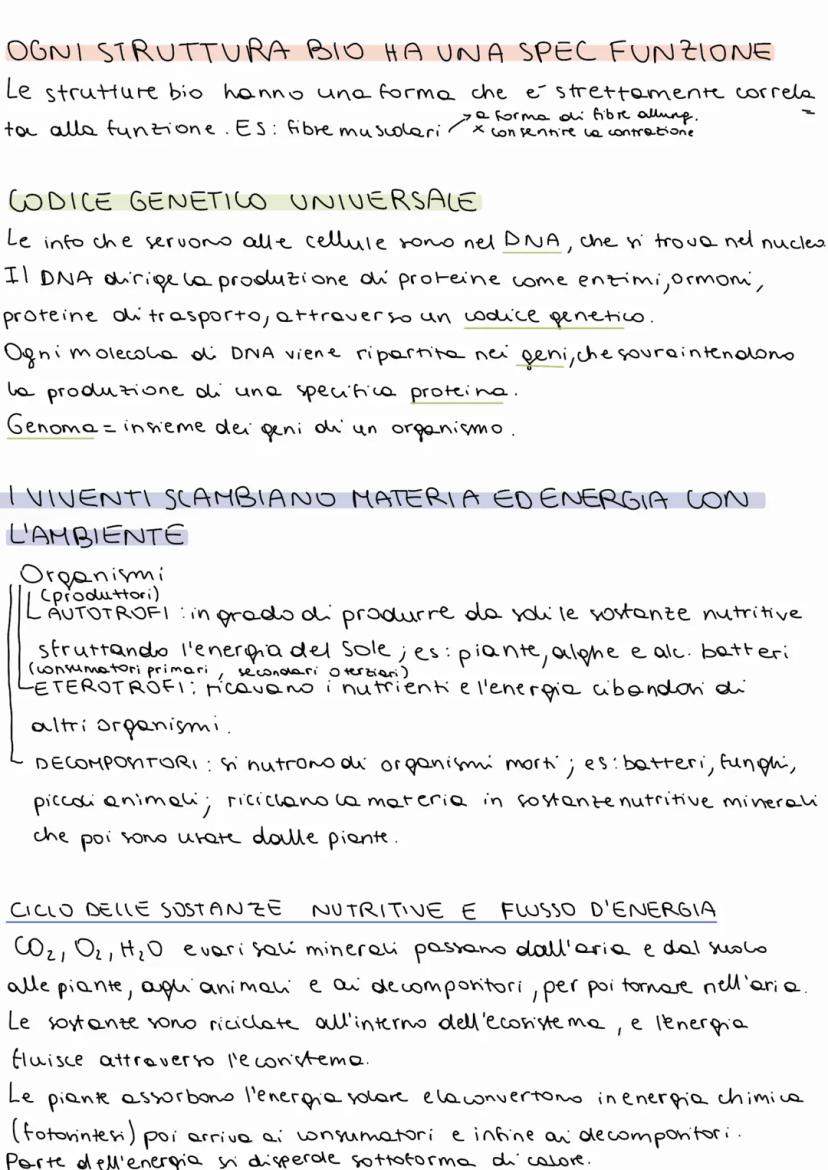 OGNI STRUTTURA BIO HA UNA SPEC FUNZIONE
Le strutture bio hanno una forma che è strettamente correla
ta alla funzione. ES: fibre muscolari → a forma di fibre allung.
x consentire la contrazione
CODICE GENETICO UNIVERSALE
Le info che servono alle cellule sono nel DNA, che si trova nel nucleo
Il DNA dirige la produzione di proteine come enzimi, ormoni,
proteine di trasporto, attraverso un codice genetico.
Ogni molecola di DNA viene ripartita nei geni, che sovraintendono
la produzione di una specifica proteina.
Genoma = insieme dei geni di un organismo.
I VIVENTI SCAMBIANO MATERIA ED ENERGIA CON
L'AMBIENTE
Organismi
(produttori)
AUTOTROFI: in grado di produrre da soli le sostanze nutritive
sfruttando l'energia del Sole; es: piante, alghe e alc. batteri
(consumatori primari, secondari o terziari)
ETEROTROFI: ricavano i nutrienti e l'energia cibandosi di
altri organismi.
DECOMPOSITORI: si nutrono di organismi morti; es: batteri, funghi,
piccoli animali; riciclano la materia in sostanze nutritive minerali
che poi sono usate dalle piante.
CICLO DELLE SOSTANZE NUTRITIVE E FLUSSO D'ENERGIA
CO₂, O₂, H₂O e vari sali minerali passano dall'aria e dal suolo
alle piante, agli animali e ai decompositori, per poi tornare nell'aria.
Le sostanze sono riciclate all'interno dell'ecosistema, e l'energia
fluisce attraverso l'ecosistema.
Le piante assorbono l'energia solare e la convertono in energia chimica
(fotosintesi) poi arriva ai consumatori e infine ai decompositori.
Parte dell'energia si disperde sottoforma di calore.